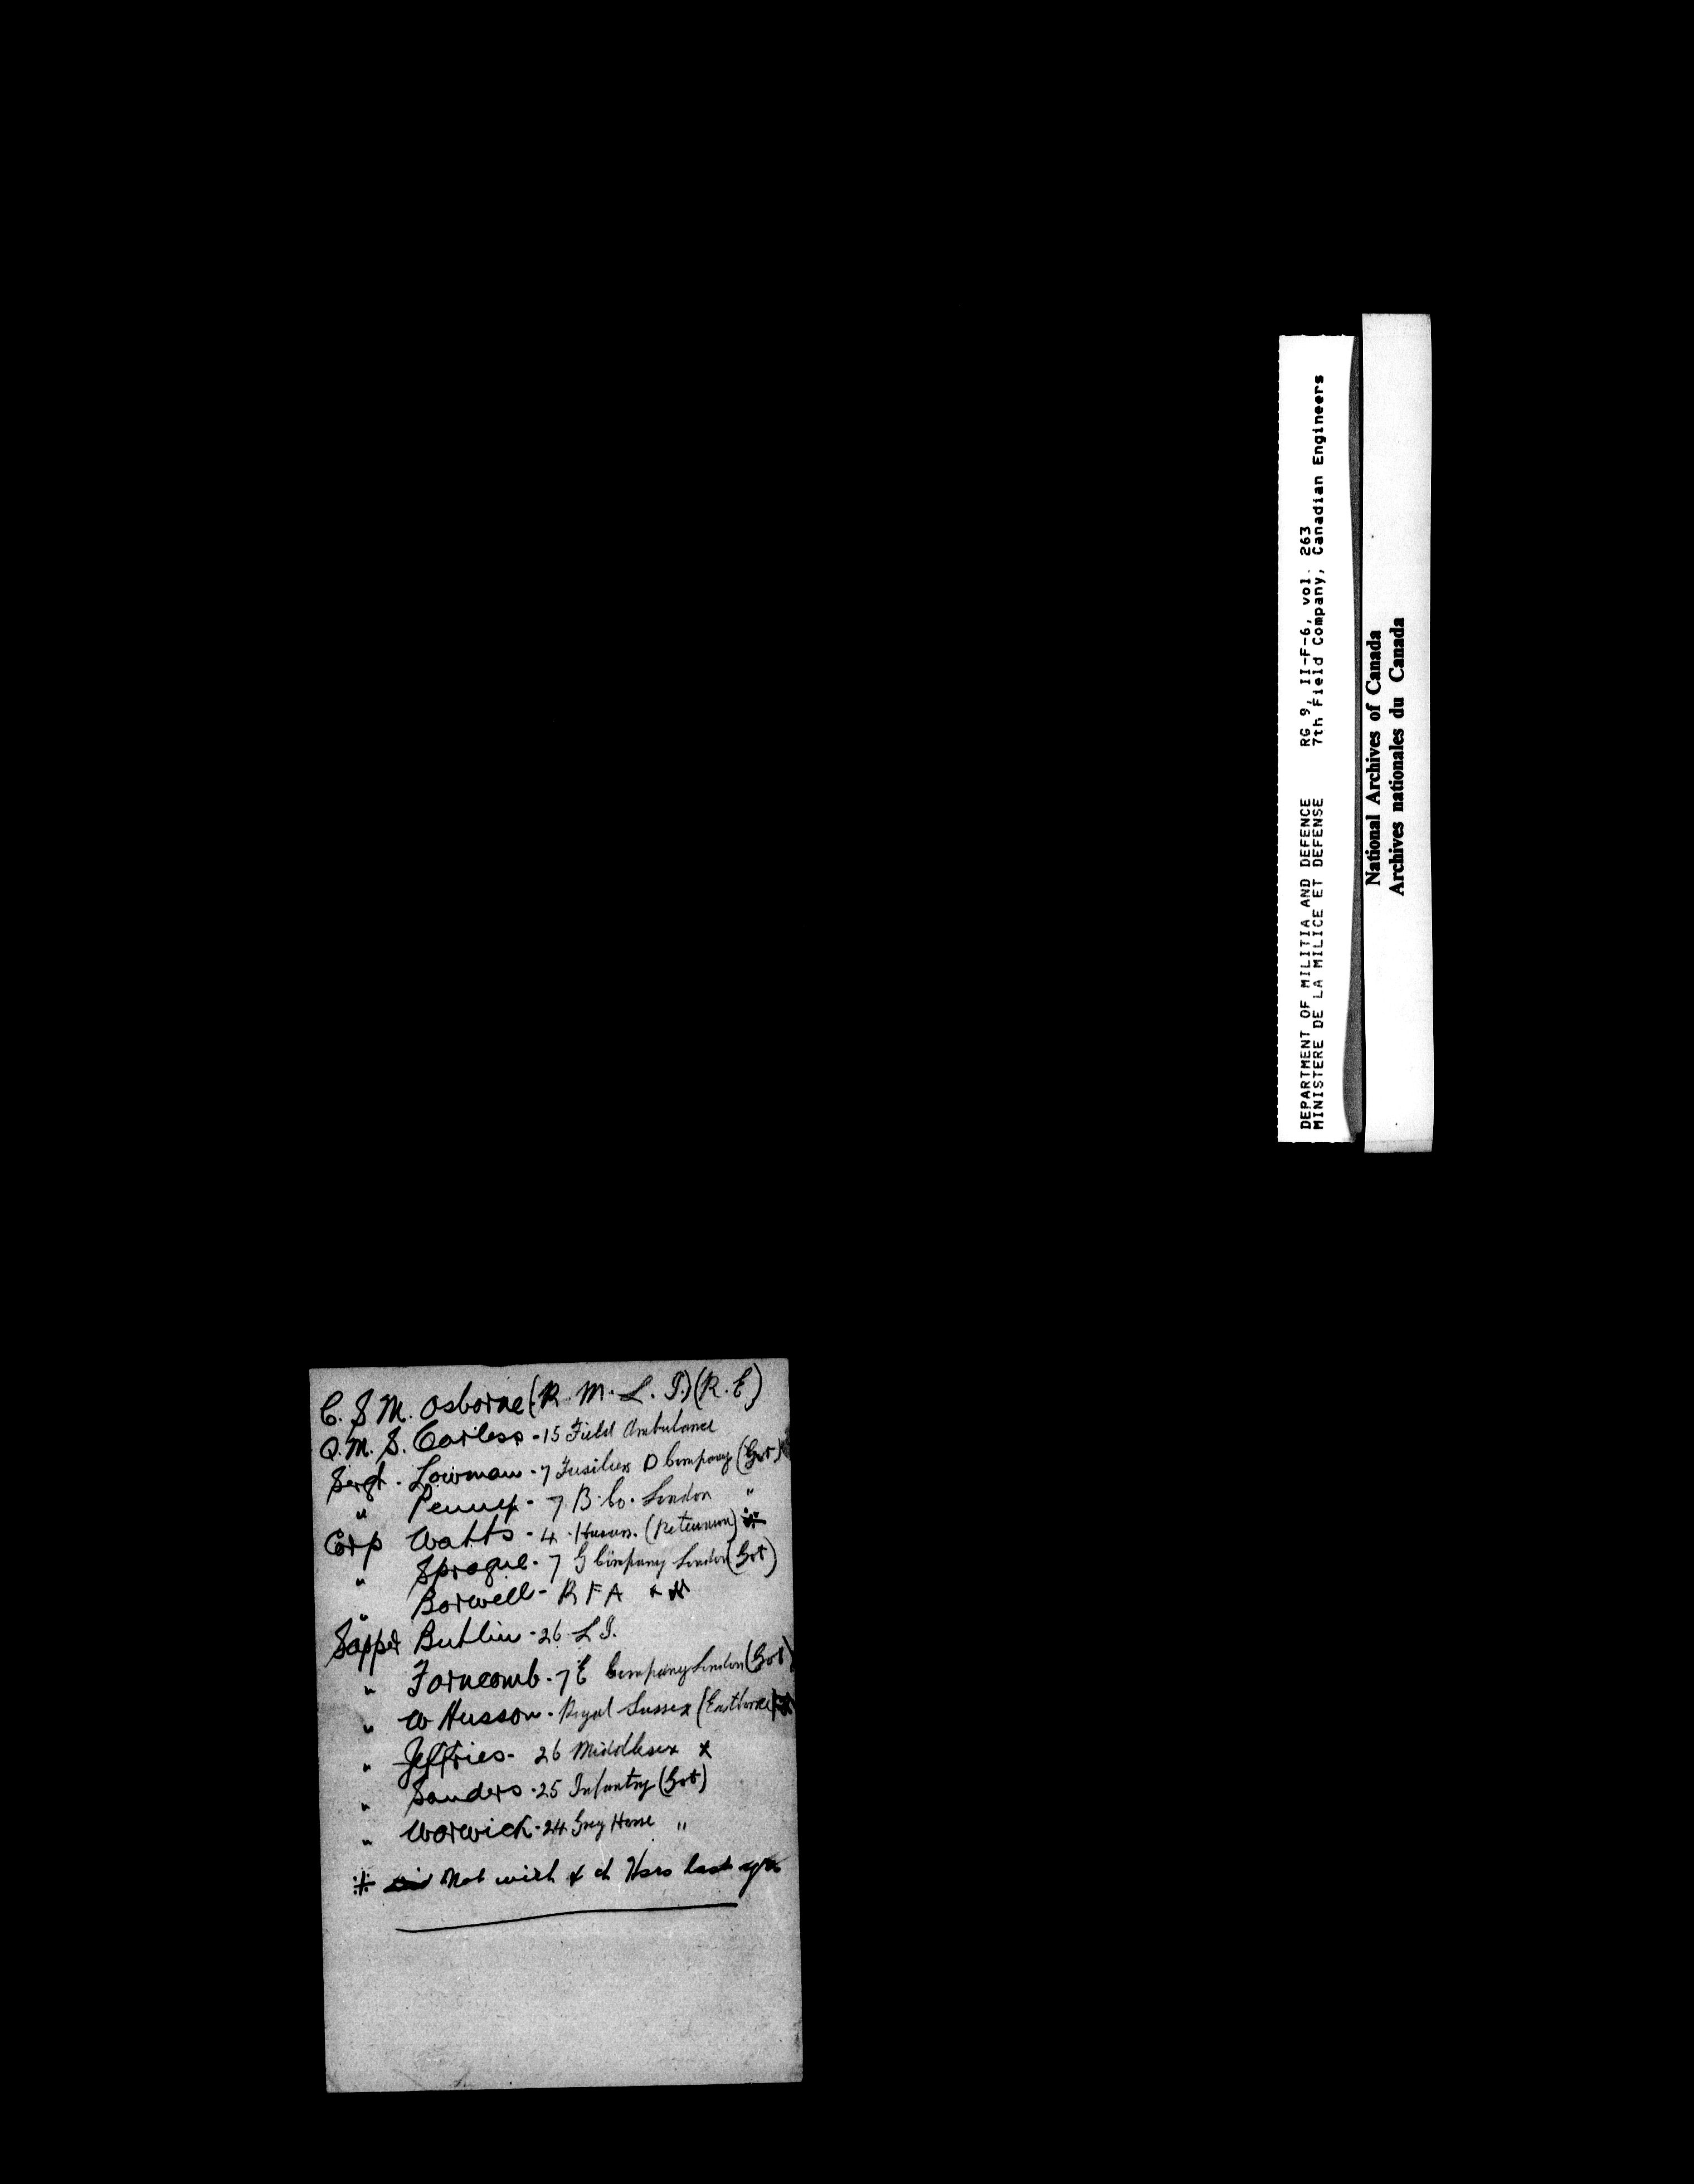 DEPARTMENT OF MILITIA AND DEFENCE RG 9, II-F-6, vol. 263
MINISTERE DE LA MILICE ET DEFENSE 7th Field Company, Canadian Engineers
National Archives of Canada
Archives nationales du Canada
C. S M. Osborne (R. M. L. I.) (R. E)
Q. M. S. Carless - 15 Field Ambulance
Sergt. Lowman - 7 Fusiliers D Company (Got)
" Penney - 7 B. Co. London "
Corp Watts - 4 (Petewawa) *
" Sprague - 7 G Company London (Got)
" Borwell - R F A
Sapper Butlin - 26 L I.
" Farncomb - 7 E Company London (Got)
" W Husson - Royal Sussex (Eastborne)
" Jeffries - 26 Middlesex x
" Sanders - 25 Infantry (Got)
" Warwick - 24 Grey Horse "
* Not with last